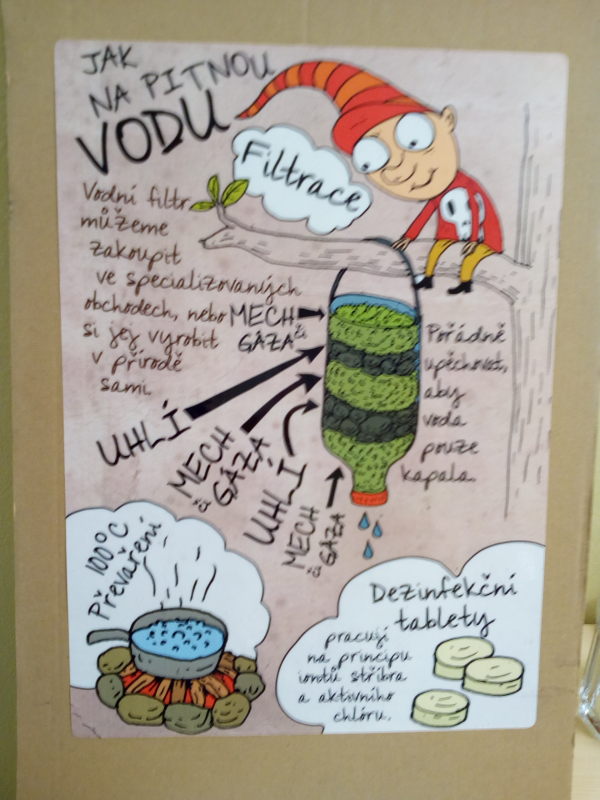 JAK
NA PITNOU
VODU
Filtrace
Vodní filtr
můžeme
zakoupit
ve specializovaných
obchodech, nebo
si jej vyrobit
v přírodě
sami.
MECH
či
GÁZA
UHLÍ
MECH
či GÁZA
UHLÍ
MECH
či GÁZA
Pořádně
upěchovat,
aby
voda
pouze
kapala.
100°C
Převaření
Dezinfekční
tablety
pracují
na principu
iontů stříbra
a aktivního
chlóru.